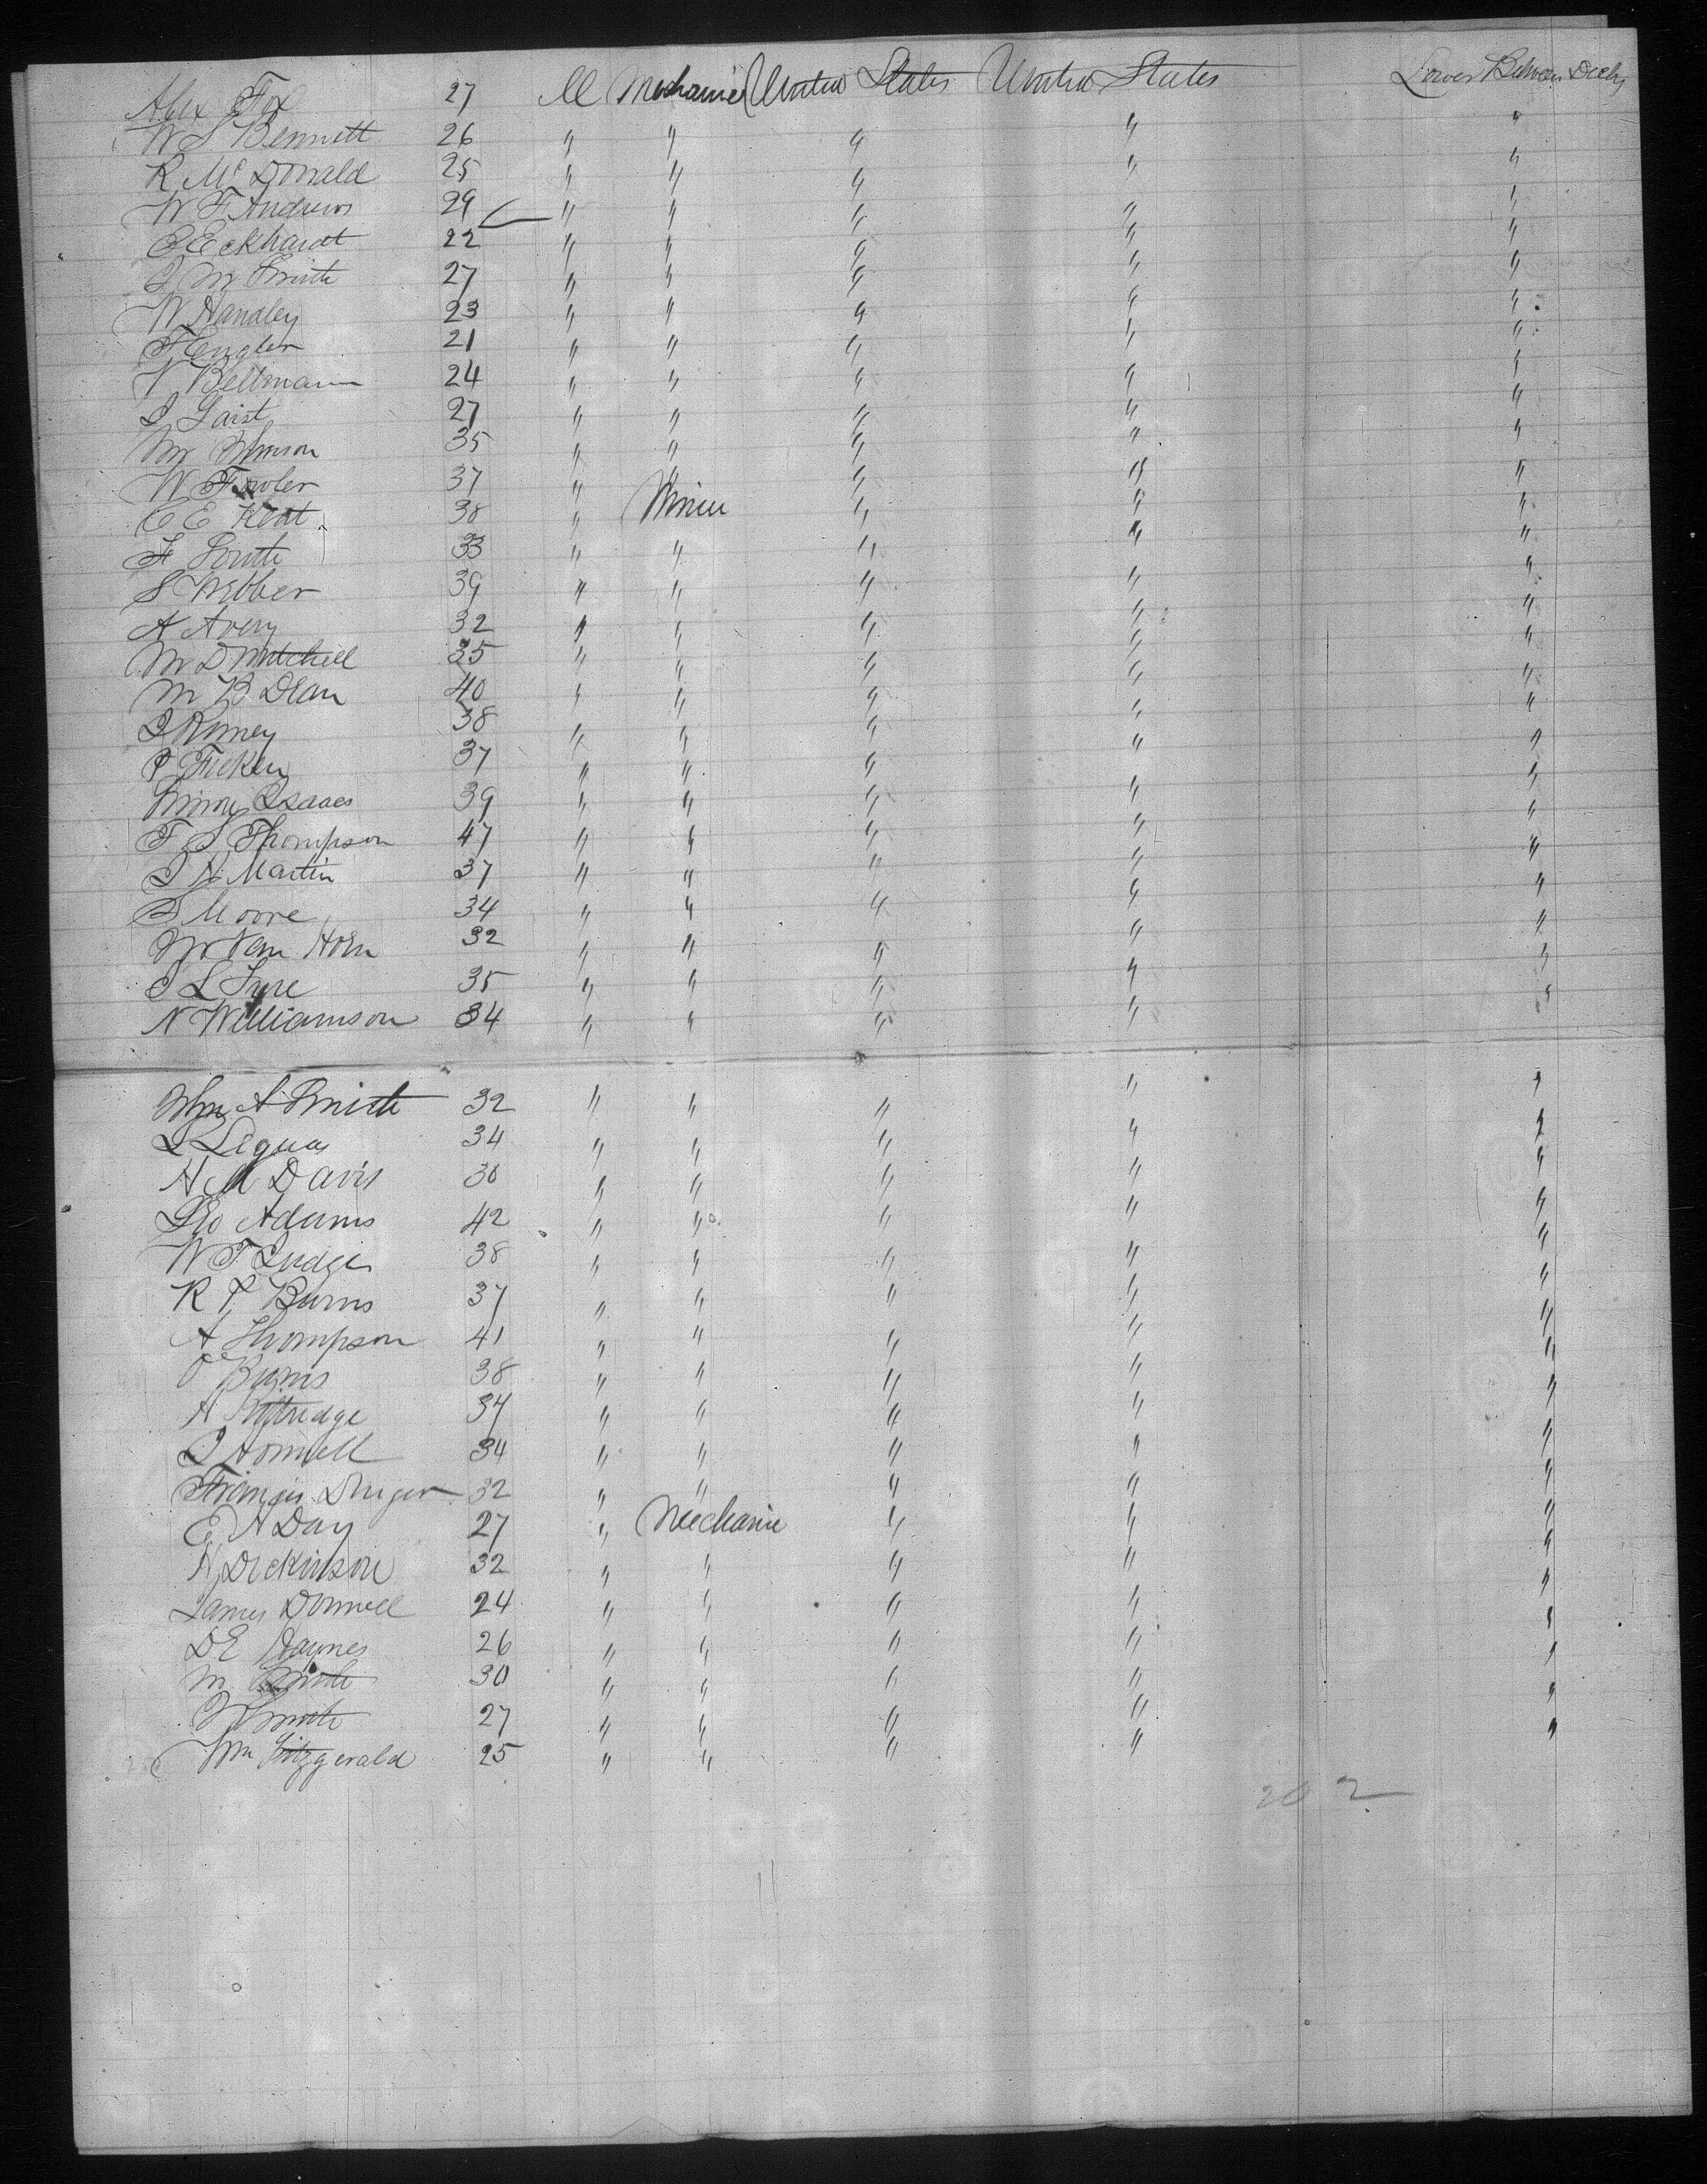 Alex Fox 27 M Mechanic United States United States Lower Between Decks
W S Bennett 26 " " " " "
R McDonald 25 " " " " "
W F Andrews 29 " " " " "
C Eckhardt 22 " " " " "
J M Smith 27 " " " " "
W Handley 23 " " " " "
F Engler 21 " " " " "
V Bellmann 24 " " " " "
J Gaist 27 " " " " "
35 " " " " "
W Fowler 37 " " " " "
C E Kent 38 " Miner " " "
F Smith 33 " " " " "
S Webber 39 " " " " "
A Avery 32 " " " " "
M D Mitchell 35 " " " " "
M B Dean 40 " " " " "
38 " " " " "
P Ficken 37 " " " " "
Simon Isaacs 39 " " " " "
F S Thompson 47 " " " " "
J H Martin 37 " " " " "
S Moore 34 " " " " "
W Van Horn 32 " " " " "
J L 35 " " " " "
N Williamson 34 " " " " "
Wm A Smith 32 " " " " "
L Legua 34 " " " " "
H M Davis 30 " " " " "
Geo Adams 42 " " " " "
W F Judge 38 " " " " "
R P Burns 37 " " " " "
A Thompson 41 " " " " "
O Burns 38 " " " " "
A Kittridge 37 " " " " "
J Honnell 34 " " " " "
Francis 32 " " " " "
E A Day 27 " Mechanic " " "
H Dickinson 32 " " " " "
James Donnell 24 " " " " "
D E Haynes 26 " " " " "
M Smith 30 " " " " "
W Smith 27 " " " " "
Wm Fitzgerald 25 " " " "
202